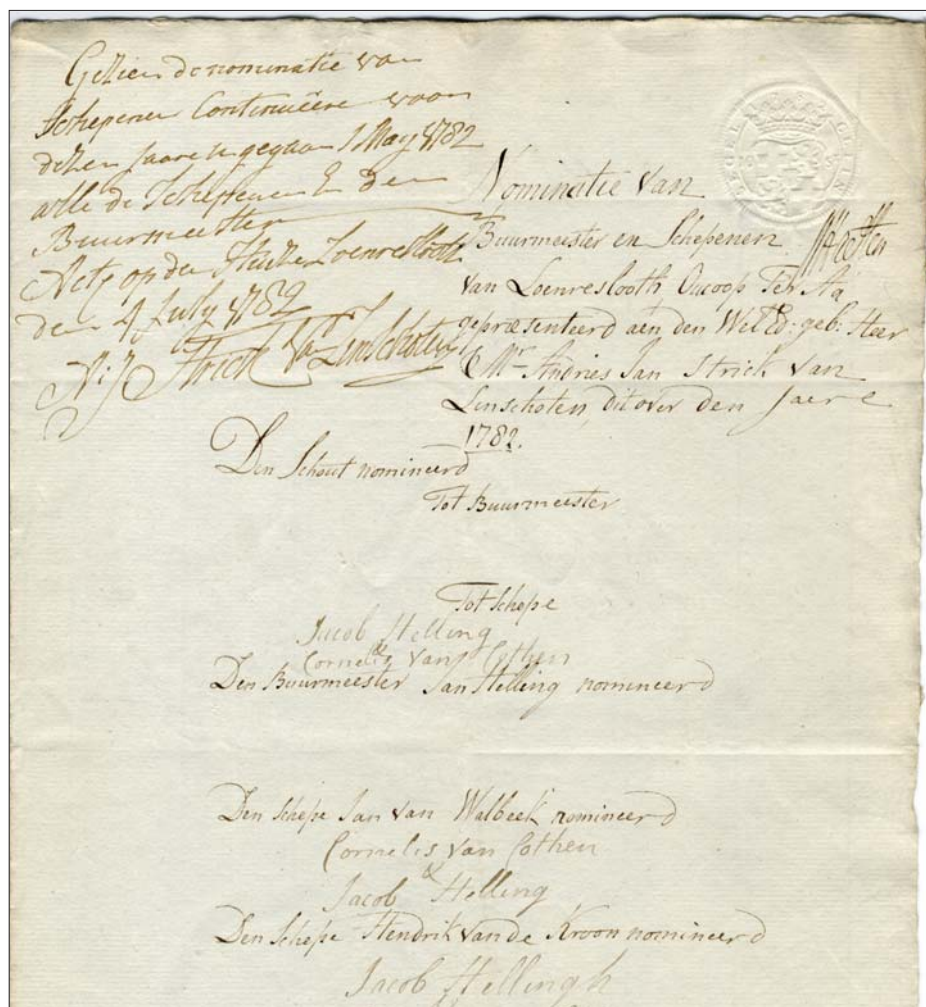 Gezien de nominatie van
Schepenen Continuëere voor
dezen Jaare ingegaan 1 May 1782
alle de Schepenen & den
Buurmeester
Actp op den Huize Loenresloth
den 4 July 1782
A: J Strick Van Linschoten
Nominatie van
Buurmeester en Schepenen
van Loenreslooth Oucoop Ter Aa
gepræsenteerd aen den Wel Ed: geb: Heer
Mr Andries Jan Strick van
Linschoten, dit over den Jaere
1782.
Den Schout nomineerd
Tot Buurmeester
Tot Schepe
Jacob Helling
&
Cornelis van Cothen
Den Buurmeester Jan Helling nomineerd
Den Schepe Jan van Walbeek nomineerd
Cornelis van Cothen
&
Jacob Helling
Den Schepe Hendrik van de Kroon nomineerd
Jacob Hellingh